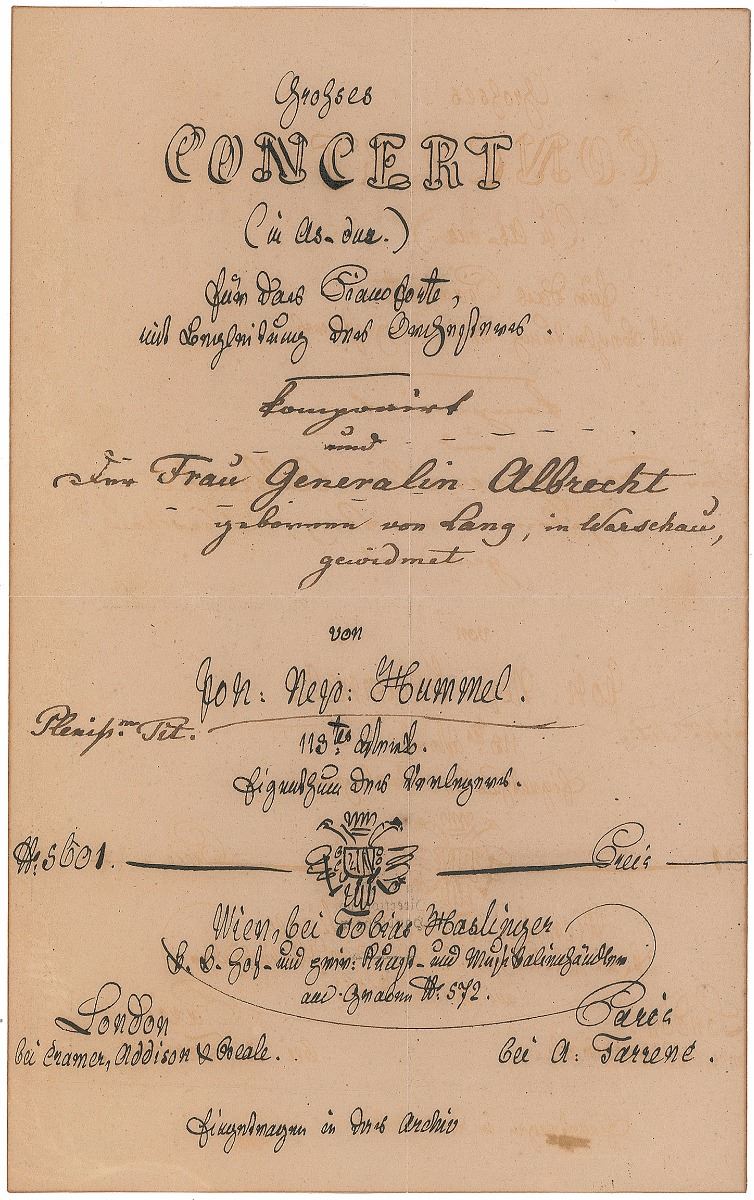 Großses
CONCERT
(in As-dur.)
für das Pianoforte,
mit Begleitung des Orchesters.
komponirt
und
Der Frau Generalin Albrecht
gebornen von Lang, in Warschau,
gewidmet
von
Joh: Nep: Hummel.
Pleniss.m Tit.
113tes Werk.
Eigenthum des Verlegers.
No. 5601. Preis
Wien, bei Tobias Haslinger
k. k. Hof- und priv: Kunst- und Musikalienhändler
am Graben No. 572.
London Paris
bei Cramer, Addison & Beale. bei A: Farrenc.
Eingetragen in das Archiv